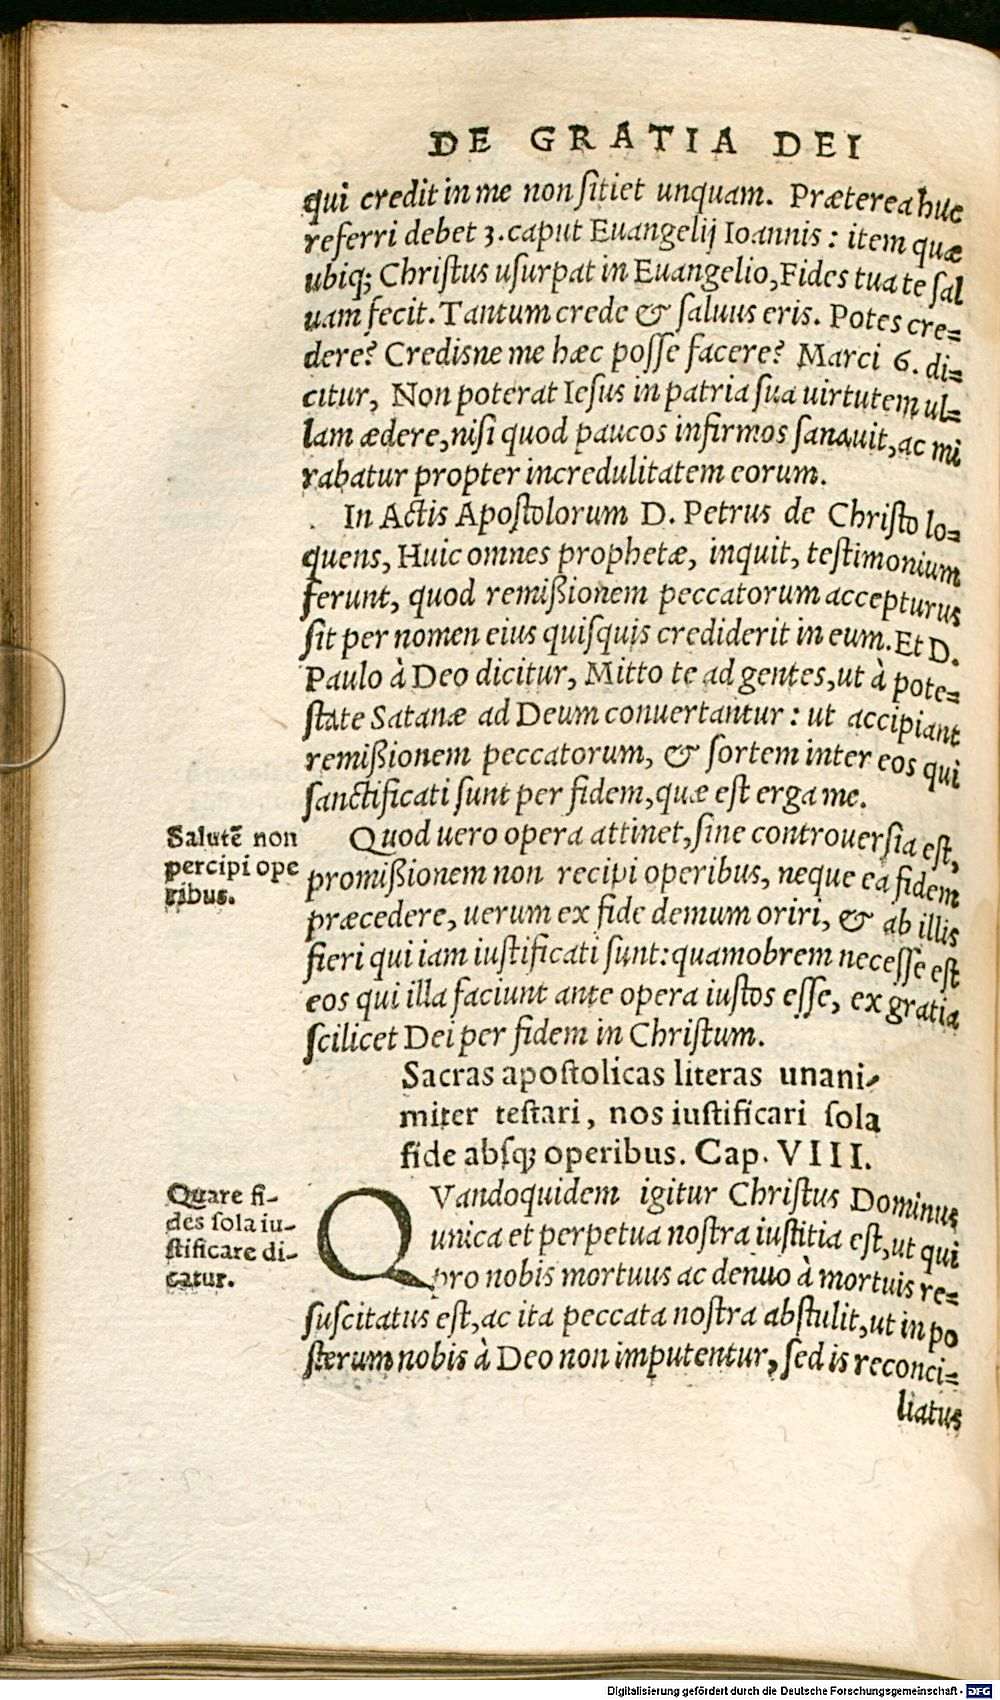 DE GRATIA DEI
qui credit in me non ſitiet unquam. Præterea huc
referri debet 3. caput Euangelij Ioannis : item quæ
ubiq; Chriſtus uſurpat in Euangelio, Fides tua te ſal
uam fecit. Tantum crede & ſaluus eris. Potes cre=
dere? Credisne me hæc poſſe facere? Marci 6. di=
citur, Non poterat Ieſus in patria ſua uirtutem ul=
lam ædere, niſi quod paucos infirmos ſanauit, ac mi
rabatur propter incredulitatem eorum.
In Actis Apoſtolorum D. Petrus de Chriſto lo=
quens, Huic omnes prophetæ, inquit, teſtimonium
ferunt, quod remißionem peccatorum accepturus
ſit per nomen eius quiſquis crediderit in eum. Et D.
Paulo à Deo dicitur, Mitto te ad gentes, ut à pote=
ſtate Satanæ ad Deum conuertantur : ut accipiant
remißionem peccatorum, & ſortem inter eos qui
ſanctificati ſunt per fidem, quæ eſt erga me.
Salutē non
percipi ope
ribus.
Quod uero opera attinet, ſine controuerſia eſt,
promißionem non recipi operibus, neque ea fidem
præcedere, uerum ex fide demum oriri, & ab illis
fieri qui iam iuſtificati ſunt: quamobrem neceſſe eſt
eos qui illa faciunt ante opera iuſtos eſſe, ex gratia
ſcilicet Dei per fidem in Chriſtum.
Sacras apoſtolicas literas unani-
miter teſtari, nos iuſtificari ſola
fide abſq; operibus. Cap. VIII.
Quare fi-
des ſola iu-
ſtificare di-
catur.
QVandoquidem igitur Chriſtus Dominus
unica et perpetua noſtra iuſtitia eſt, ut qui
pro nobis mortuus ac denuo à mortuis re=
ſuſcitatus eſt, ac ita peccata noſtra abſtulit, ut in po
ſterum nobis à Deo non imputentur, ſed is reconci=
liatus
Digitalisierung gefördert durch die Deutsche Forschungsgemeinschaft - DFG